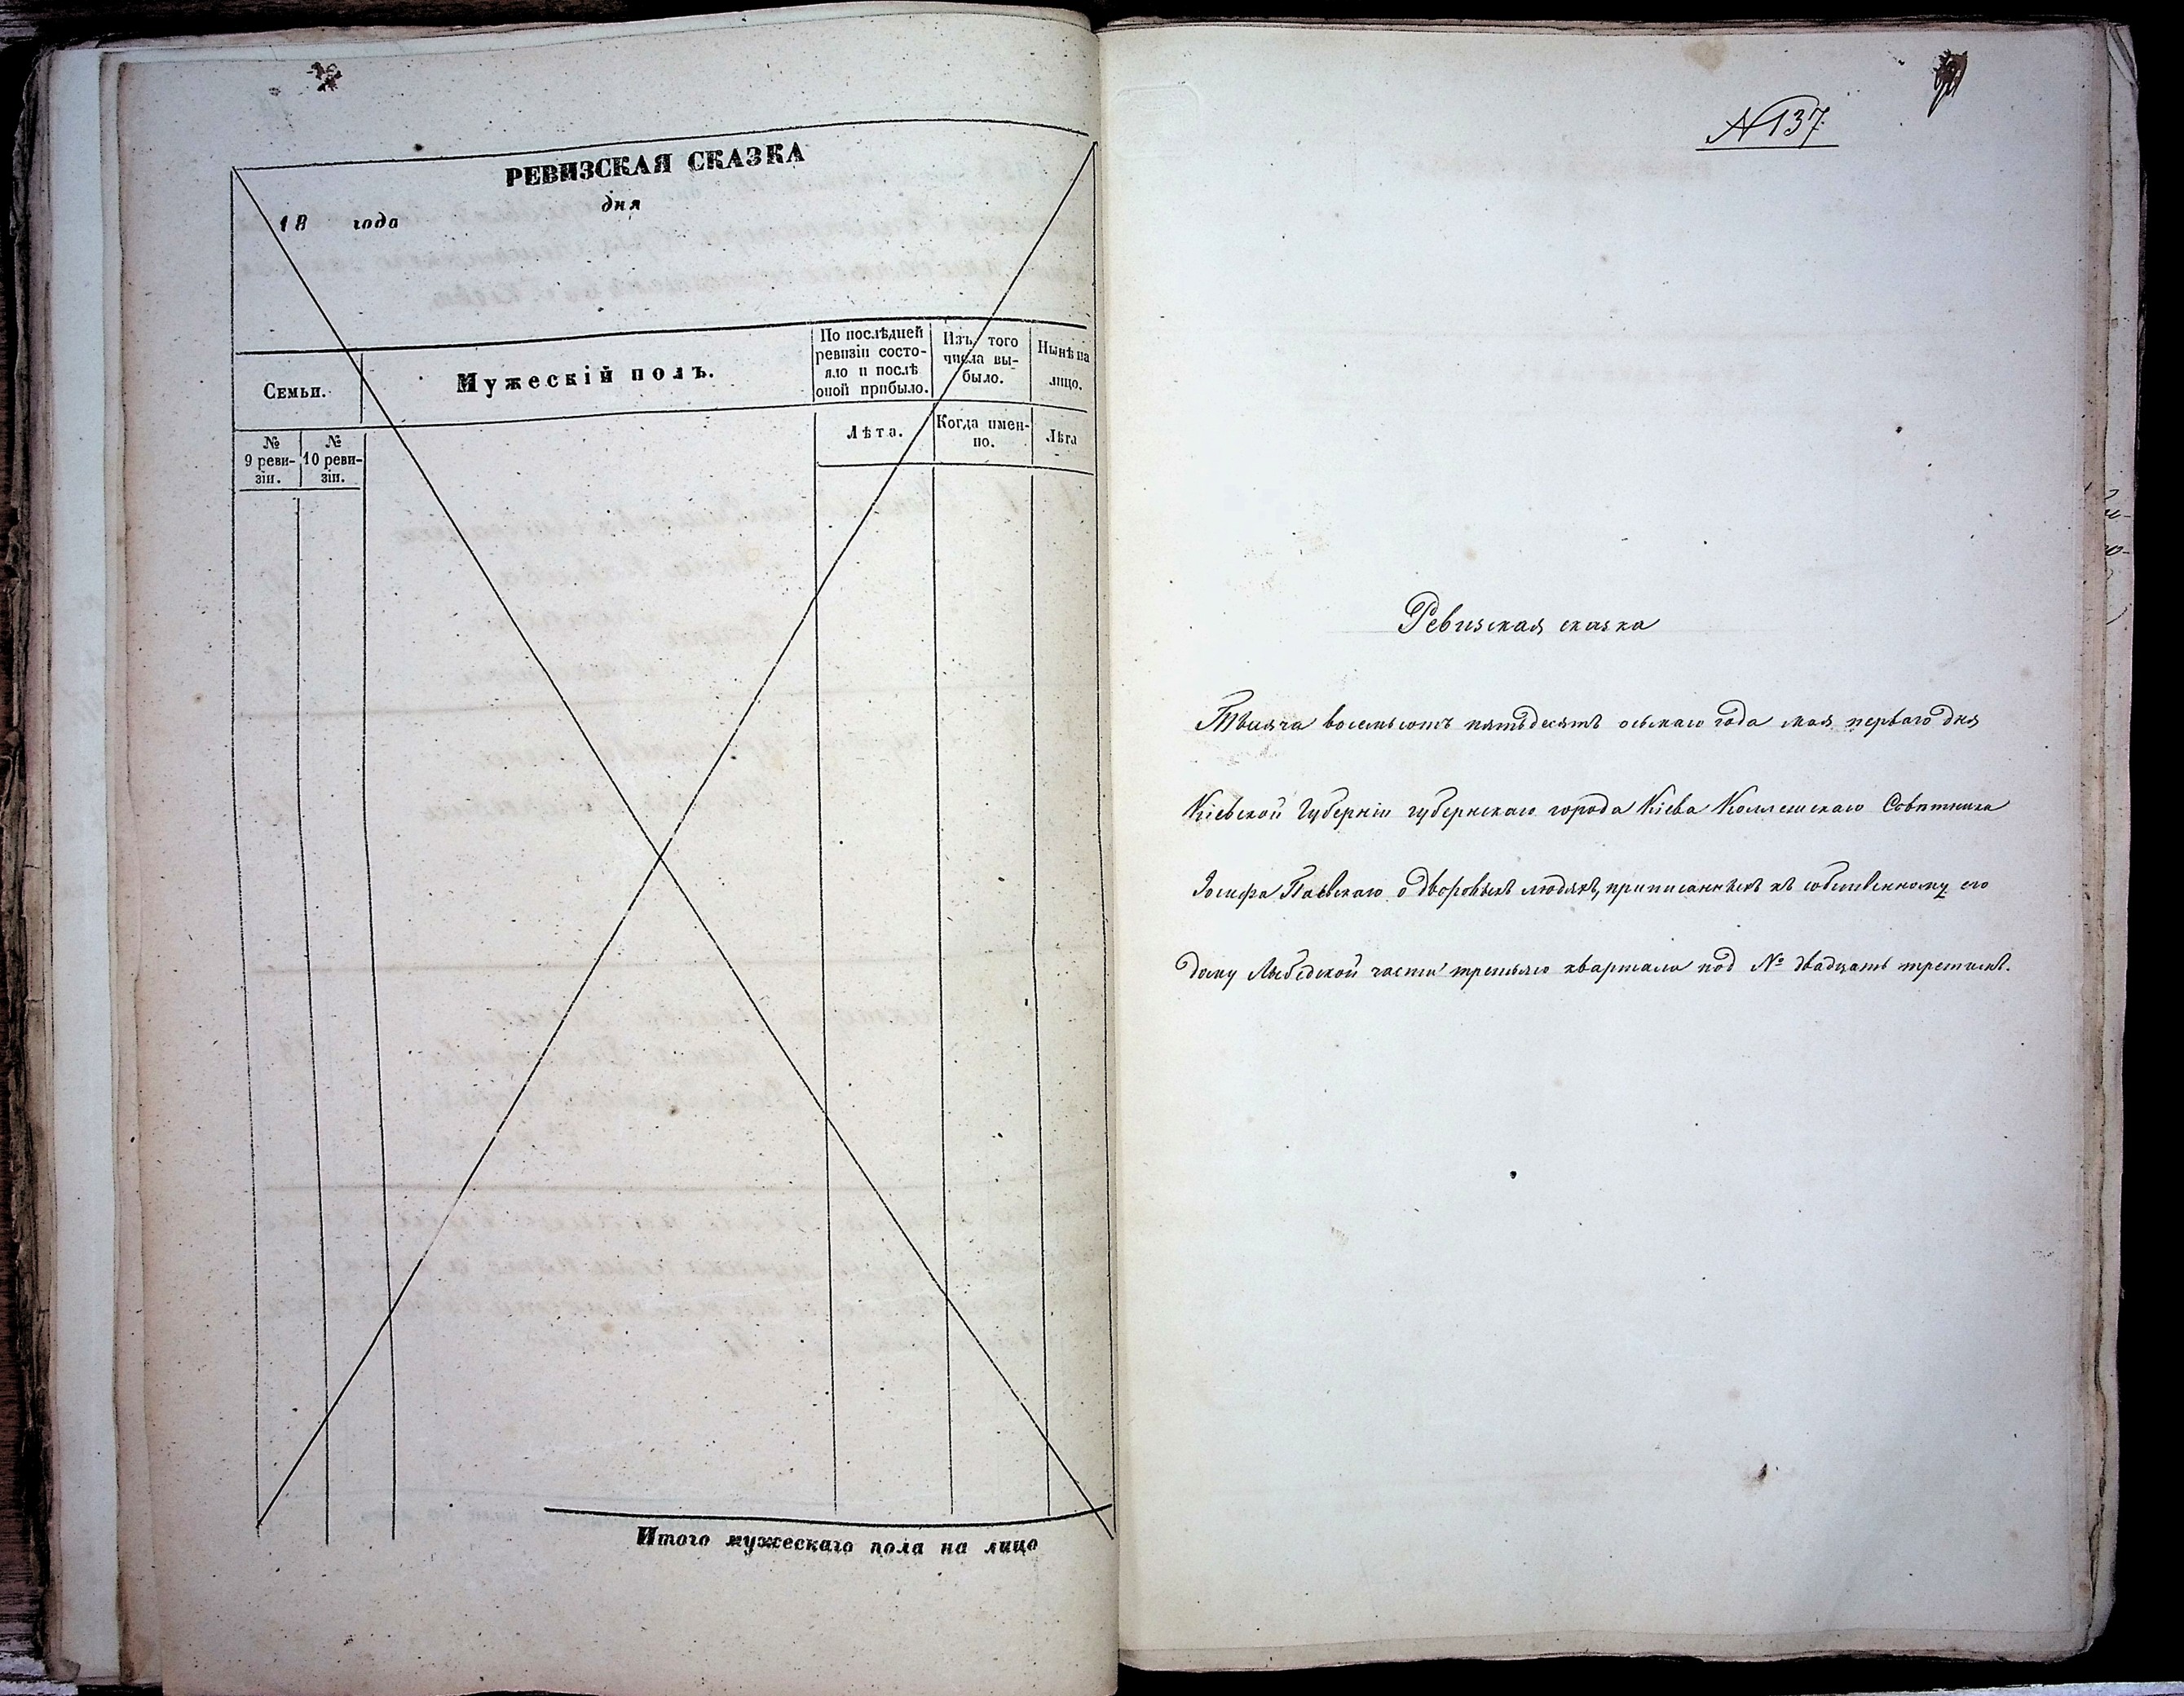 РЕВИЗСКАЯ СКАЗКА
18 года дня
Семьи.
Мужескій полъ.
По послѣдней ревизіи состояло и послѣ оной прибыло.
Изъ того числа выбыло.
Нынѣ на лицо.
№ 9 ревизіи.
№ 10 ревизіи.
Лѣта.
Когда именно.
Лѣта
Итого мужескаго пола на лицо
№ 137
Ревизская сказка
Тысяча восемьсотъ пятьдесятъ осьмаго года мая перваго дня
Кіевской Губерніи губернскаго города Кіева Коллежскаго Совѣтника
Іосифа о дворовыхъ людяхъ, приписанныхъ къ собственному его
дому Лыбедской части третьяго квартала под № двадцать третимъ.